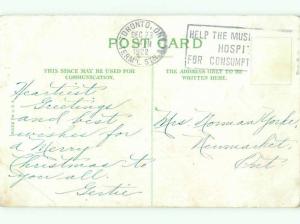 TORONTO, ONT.
DEC 23
1922
HELP THE MUS
HOSPIT
FOR CONSUMPT
POST CARD
THIS SPACE MAY BE USED FOR
COMMUNICATION.
THE ADDRESS ONLY TO BE
WRITTEN HERE.
Heartiest
Greetings
and best
wishes for
a Merry
Christmas to
you all.
Gertie
Mrs Norman Yorke,
Newmarket,
Ont.